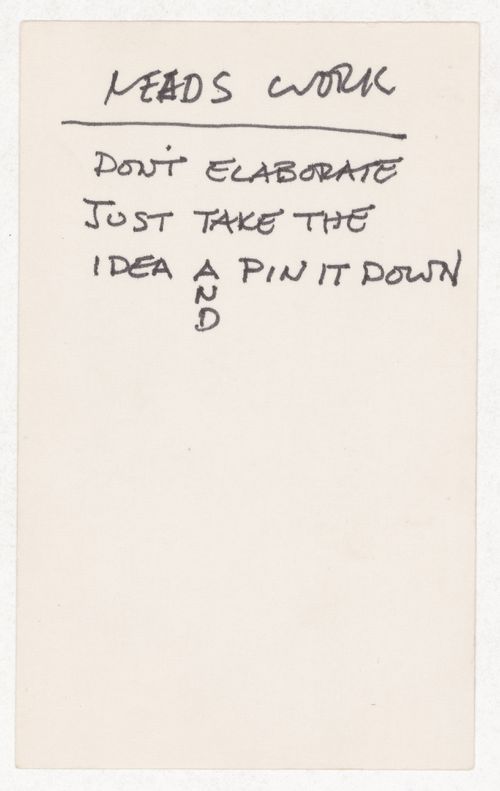 NEADS WORK
DON'T ELABORATE
JUST TAKE THE
IDEA AND PIN IT DOWN